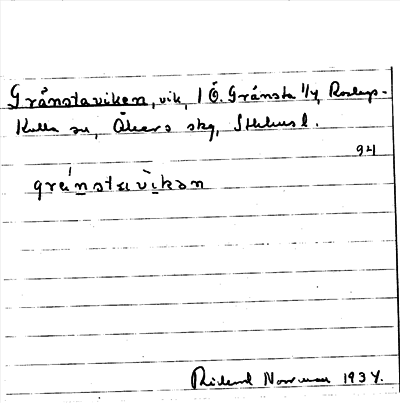 Gränstaviken, vik, i Ö. Gränsta 1/4, Roslags-
Kulla sn, Åkers skg, Sthlms l.
94
gränstavikən
Rickard Norrman 1934.